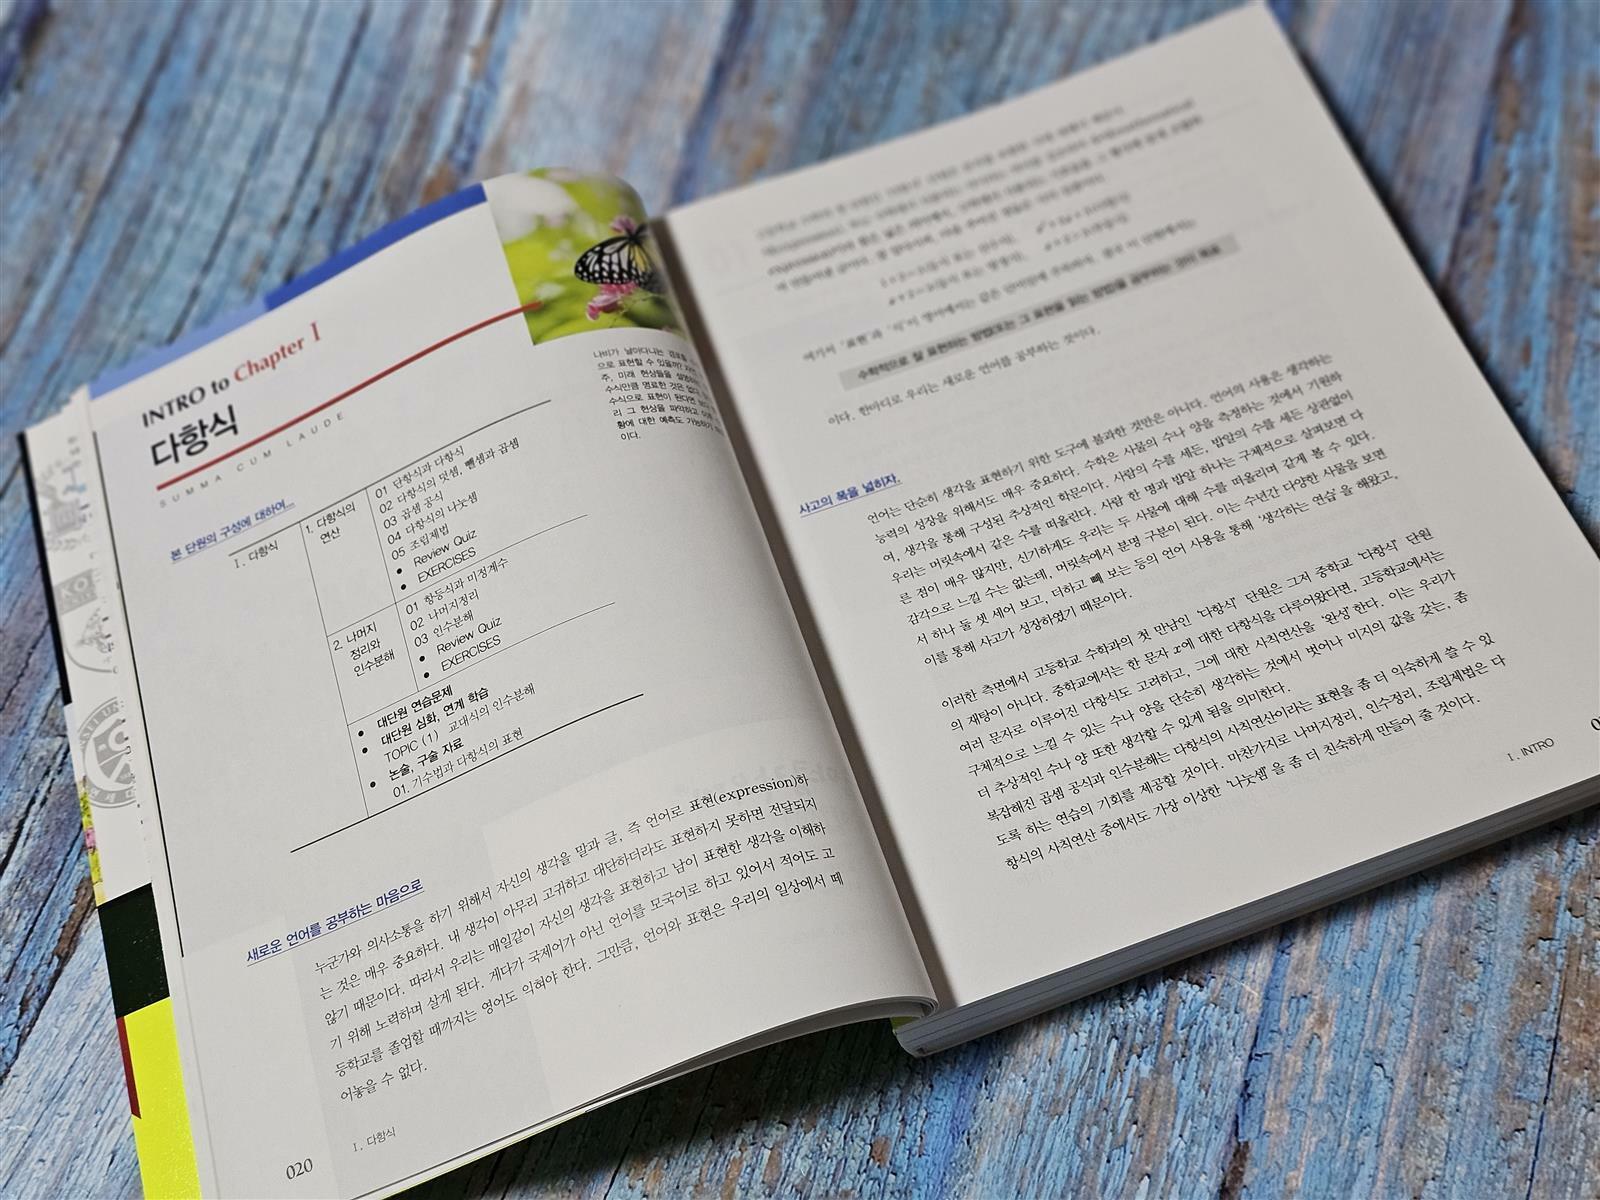 INTRO to Chapter I
다항식
SUMMA CUM LAUDE
본 단원의 구성에 대하여...
I. 다항식
1. 다항식의
연산
01 단항식과 다항식
02 다항식의 덧셈, 뺄셈과 곱셈
03 곱셈 공식
04 다항식의 나눗셈
05 조립제법
● Review Quiz
● EXERCISES
2. 나머지
정리와
인수분해
01 항등식과 미정계수
02 나머지정리
03 인수분해
● Review Quiz
● EXERCISES
● 대단원 연습문제
● 대단원 심화, 연계 학습
TOPIC (1) 교대식의 인수분해
● 논술, 구술 자료
01. 기수법과 다항식의 표현
나비가 날아다니는 경로를
으로 표현할 수 있을까?
주, 미래 현상들을
수식만큼 명료한 것은 없다.
수식으로 표현이 된다면
리 그 현상을 파악하고
황에 대한 예측도 가능하기
이다.
새로운 언어를 공부하는 마음으로
누군가와 의사소통을 하기 위해서 자신의 생각을 말과 글, 즉 언어로 표현(expression)하
는 것은 매우 중요하다. 내 생각이 아무리 고귀하고 대단하더라도 표현하지 못하면 전달되지
않기 때문이다. 따라서 우리는 매일같이 자신의 생각을 표현하고 남이 표현한 생각을 이해하
기 위해 노력하며 살게 된다. 게다가 국제어가 아닌 언어를 모국어로 하고 있어서 적어도 고
등학교를 졸업할 때까지는 영어도 익혀야 한다. 그만큼, 언어와 표현은 우리의 일상에서 떼
어놓을 수 없다.
020
I. 다항식
여기서 '표현'과 '식'이 영어에서는 같은 단어임에 주목하자. 결국 이 단원에서는
수학적으로 잘 표현하는 방법(또는 그 표현을 읽는 방법)을 공부하는 것이 목표
이다. 한마디로 우리는 새로운 언어를 공부하는 것이다.
사고의 폭을 넓히자.
언어는 단순히 생각을 표현하기 위한 도구에 불과한 것만은 아니다. 언어의 사용은 생각하는
능력의 성장을 위해서도 매우 중요하다. 수학은 사물의 수나 양을 측정하는 것에서 기원하
여, 생각을 통해 구성된 추상적인 학문이다. 사람의 수를 세든, 밥알의 수를 세든 상관없이
우리는 머릿속에서 같은 수를 떠올린다. 사람 한 명과 밥알 하나는 구체적으로 살펴보면 다
른 점이 매우 많지만, 신기하게도 우리는 두 사물에 대해 수를 떠올리며 같게 볼 수 있다.
감각으로 느낄 수는 없는데, 머릿속에서 분명 구분이 된다. 이는 수년간 다양한 사물을 보면
서 하나 둘 셋 세어 보고, 더하고 빼 보는 등의 언어 사용을 통해 '생각하는 연습'을 해왔고,
이를 통해 사고가 성장하였기 때문이다.
이러한 측면에서 고등학교 수학과의 첫 만남인 '다항식' 단원은 그저 중학교 '다항식' 단원
의 재탕이 아니다. 중학교에서는 한 문자 x에 대한 다항식을 다루어왔다면, 고등학교에서는
여러 문자로 이루어진 다항식도 고려하고, 그에 대한 사칙연산을 '완성'한다. 이는 우리가
구체적으로 느낄 수 있는 수나 양을 단순히 생각하는 것에서 벗어나 미지의 값을 갖는, 좀
더 추상적인 수나 양 또한 생각할 수 있게 됨을 의미한다.
복잡해진 곱셈 공식과 인수분해는 다항식의 사칙연산이라는 표현을 좀 더 익숙하게 쓸 수 있
도록 하는 연습의 기회를 제공할 것이다. 마찬가지로 나머지정리, 인수정리, 조립제법은 다
항식의 사칙연산 중에서도 가장 이상한 '나눗셈'을 좀 더 친숙하게 만들어 줄 것이다.
I. INTRO